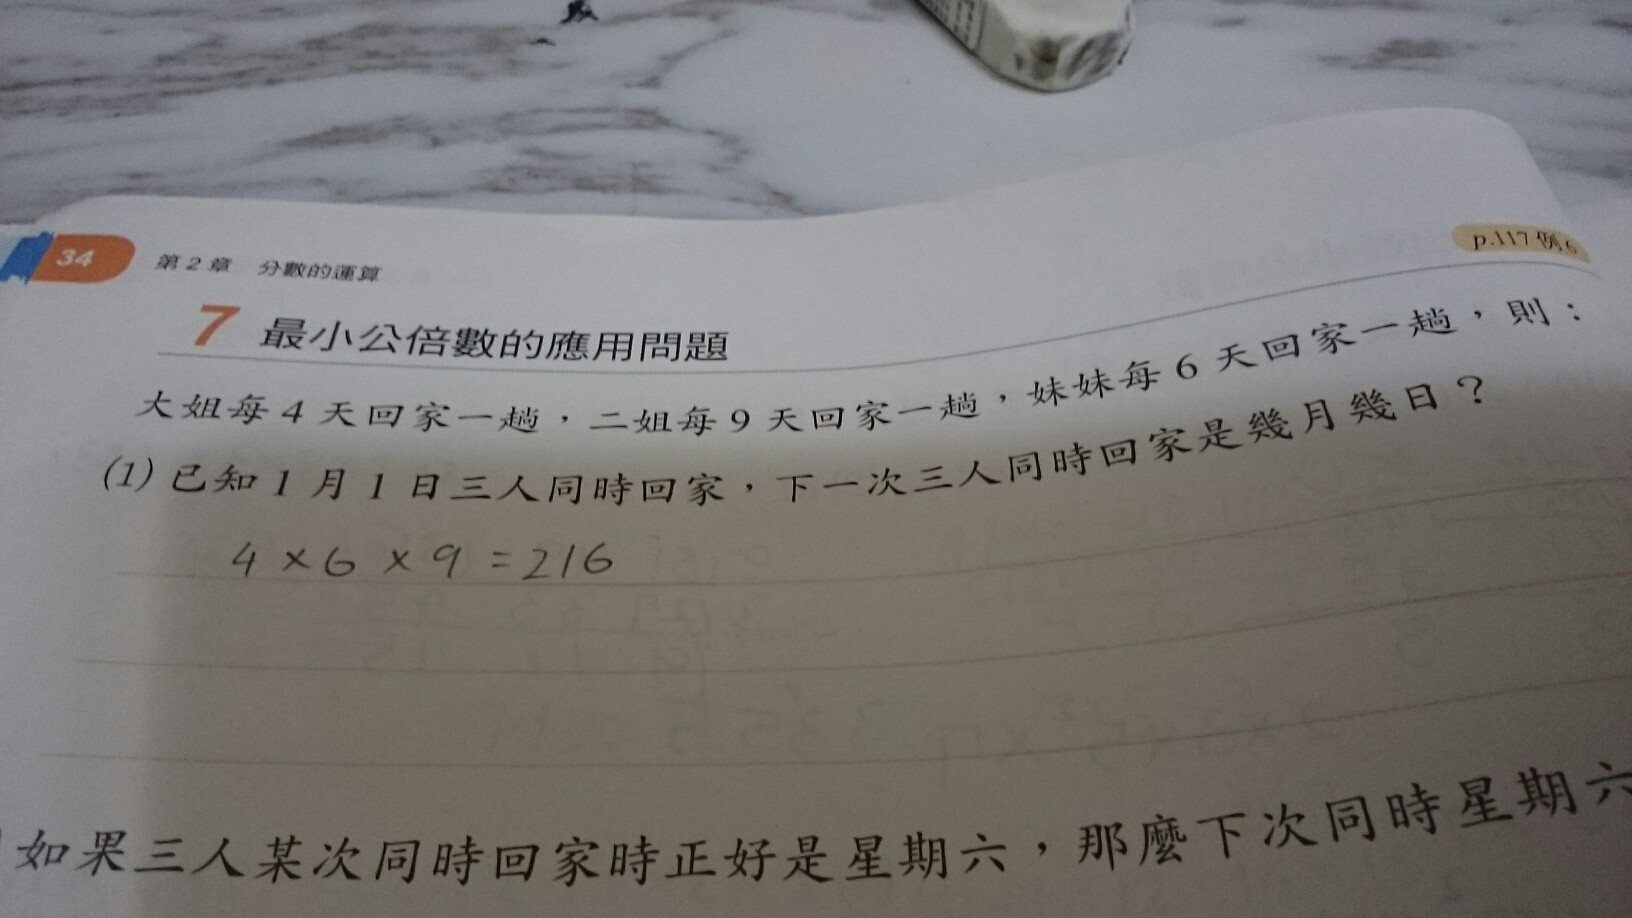 34 第2章 分數的運算
p.117 例6
7 最小公倍數的應用問題
大姐每4天回家一趟，二姐每9天回家一趟，妹妹每6天回家一趟，則：
(1)已知1月1日三人同時回家，下一次三人同時回家是幾月幾日？
4×6×9=216
如果三人某次同時回家時正好是星期六，那麼下次同時星期六